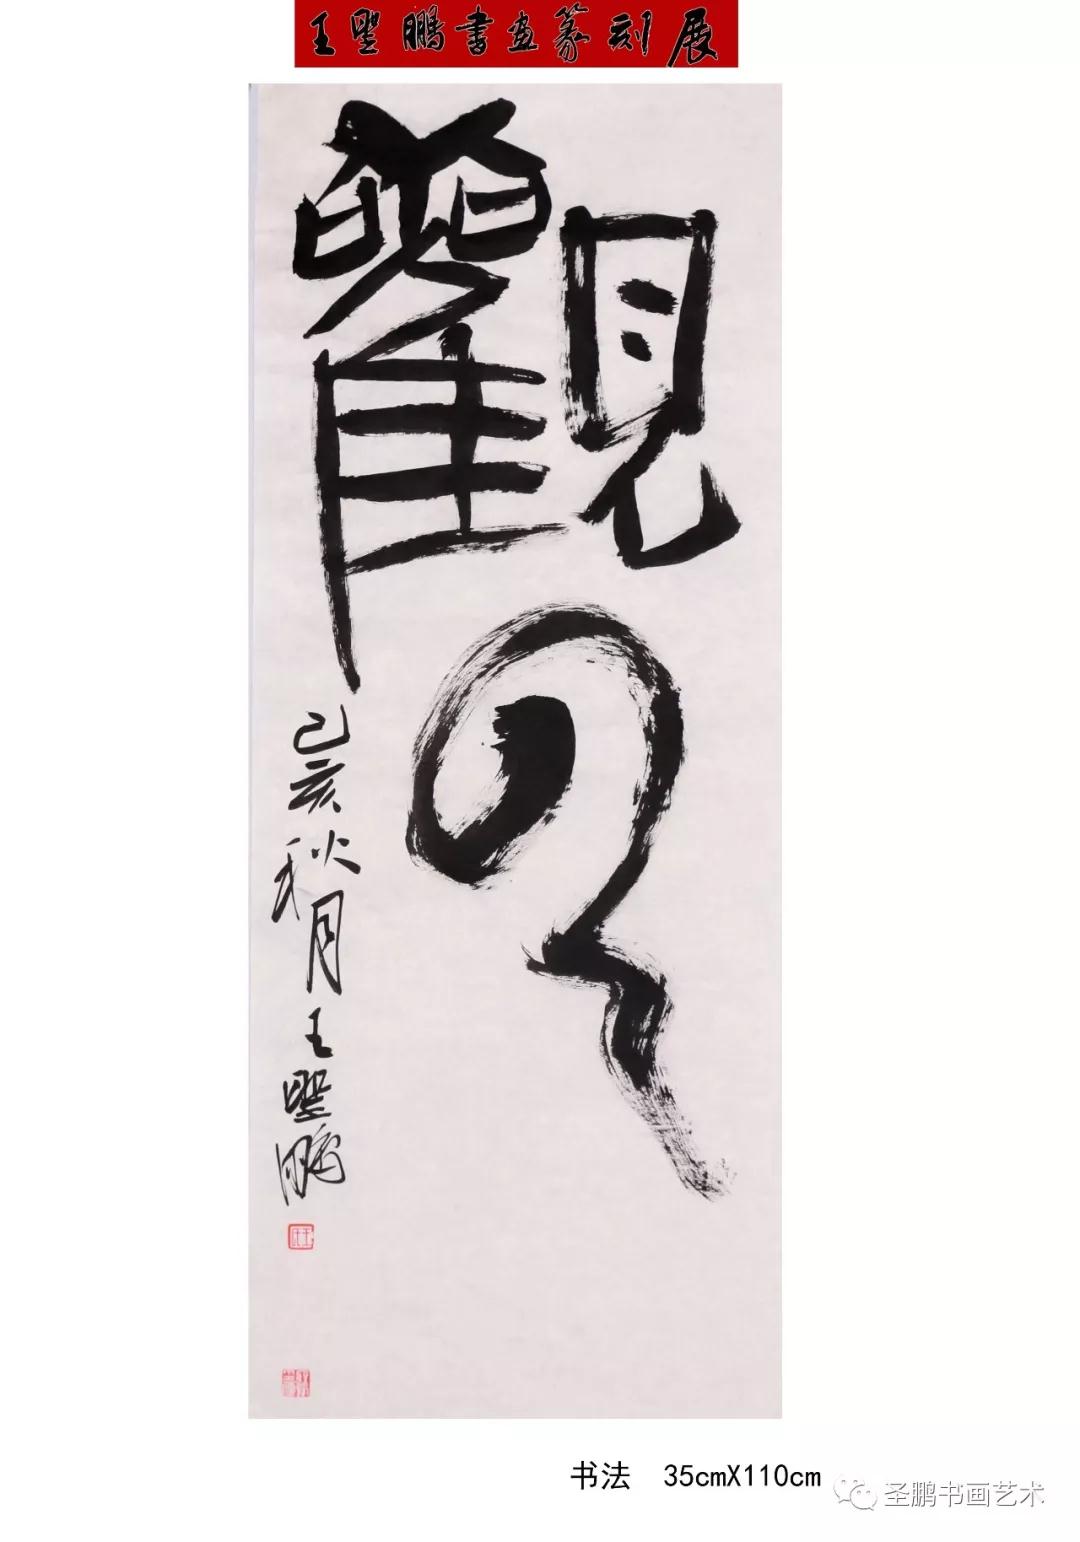 王聖鵬書畫篆刻展
觀
己亥秋月王聖鵬
书法 35cmX110cm
圣鹏书画艺术